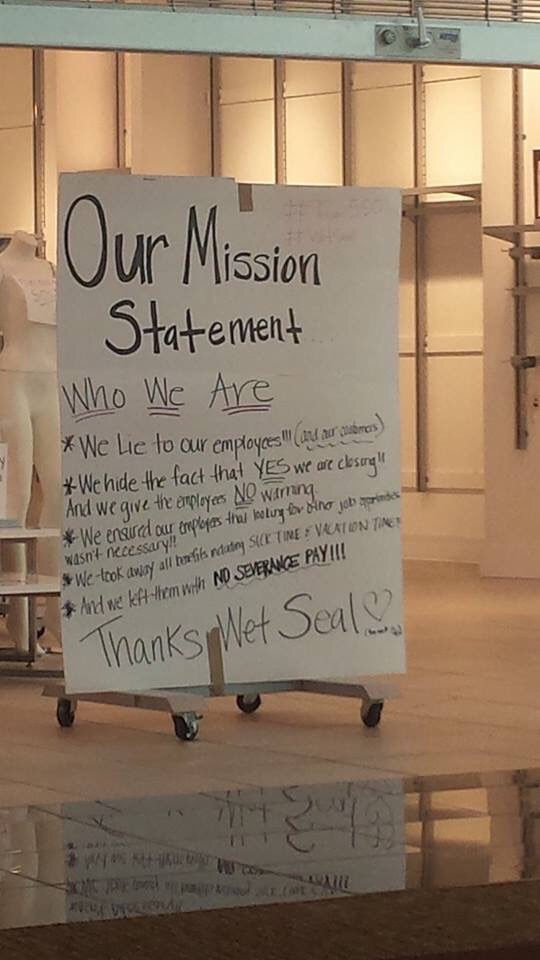 Our Mission
Statement
Who We Are
* We Lie to our employees!!! (and our customers)
* We hide the fact that YES we are closing!!
And we give the employees NO warning
* We ensured our employees that looking for other job opportunities
wasn't necessary!!
* We took away all benefits including SICK TIME & VACATION TIME!!
* And we left them with NO SEVERANCE PAY!!!
Thanks Wet Seal ♡